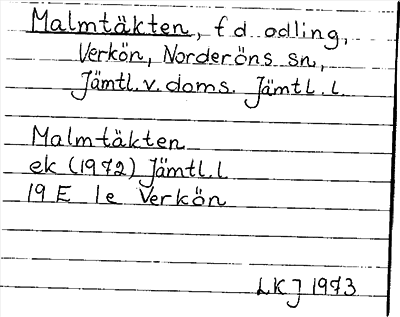 Malmtäkten, f d odling,
Verkön, Norderöns sn,
Jämtl. v. doms. Jämtl. l.
Malmtäkten
ek (1972) Jämtl. l
19 E 1e Verkön
LKJ 1973